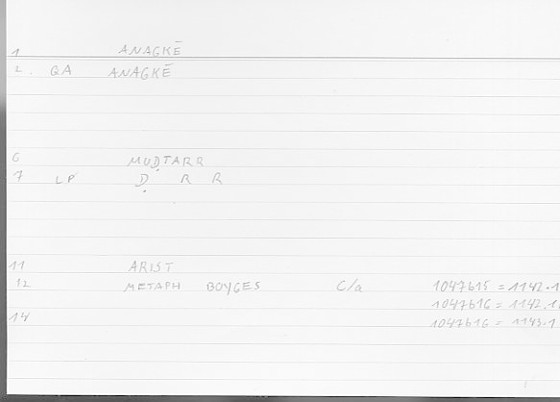 1 ANAGKĒ
2. QA ANAGKĒ
6 MUḌTARR
7 LP Ḍ R R
11 ARIST
12 METAPH BOYGES C/a 1047615 = 1142.1
1047616 = 1142.1
14 1047616 = 1143.1